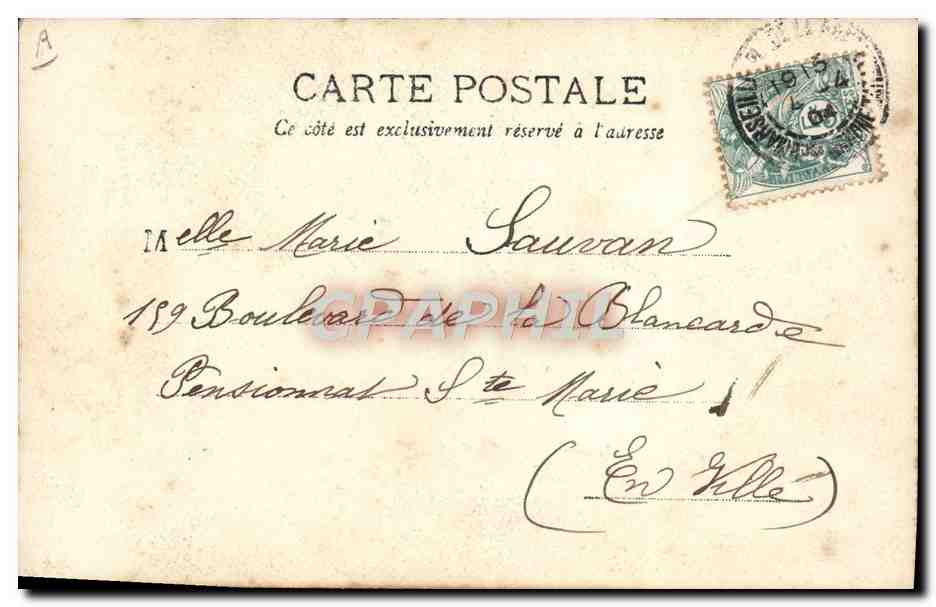 A
CARTE POSTALE
Ce côté est exclusivement réservé à l'adresse
MARSEILLE
Melle Marie Sauvan
159 Boulevard de la Blancarde
CPAPHIL
Pensionnat Ste Marie
(En Ville)